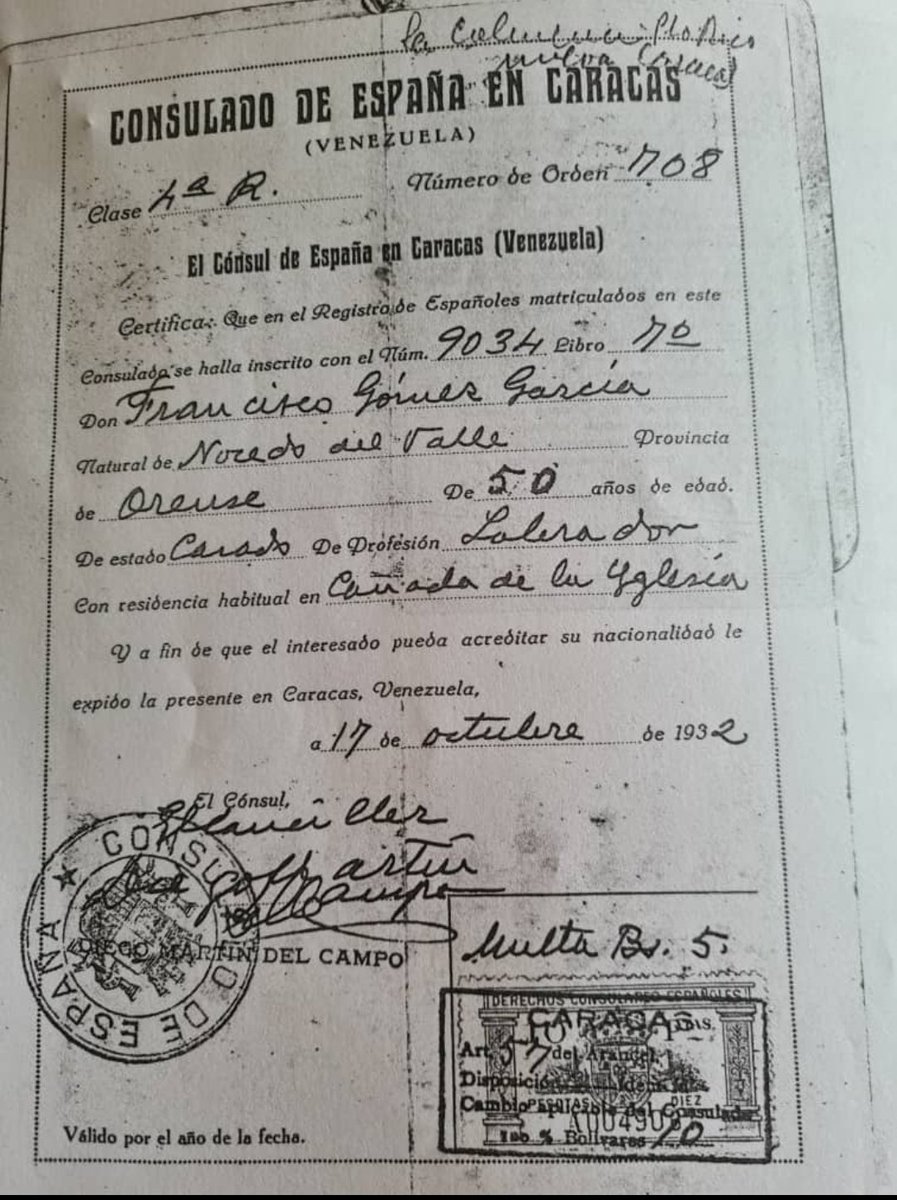 La
Nueva Caracas
CONSULADO DE ESPAÑA EN CARACAS
(VENEZUELA)
Clase 4ª R. Número de Orden 708
El Cónsul de España en Caracas (Venezuela)
Certifica: Que en el Registro de Españoles matriculados en este
Consulado se halla inscrito con el Núm. 9034 Libro 7º
Don Francisco Gómez García
Natural de Nocedo del Valle Provincia
de Orense De 50 años de edad.
De estado Casado De Profesión Labrador
Con residencia habitual en Cañada de la Yglesia
Y a fin de que el interesado pueda acreditar su nacionalidad le
expido la presente en Caracas, Venezuela,
a 17 de octubre de 1932
El Cónsul,
El Canciller
Martín
Campo
DIEGO MARTIN DEL CAMPO
CONSULADO DE ESPAÑA
Multa Bs. 5.
DERECHOS CONSULARES ESPAÑOLES
CARACAS
Art. 57 del Arancel
Disposición
PESETAS DIEZ
Cambio aplicable del Consulado
% Bolívares 10
Válido por el año de la fecha.